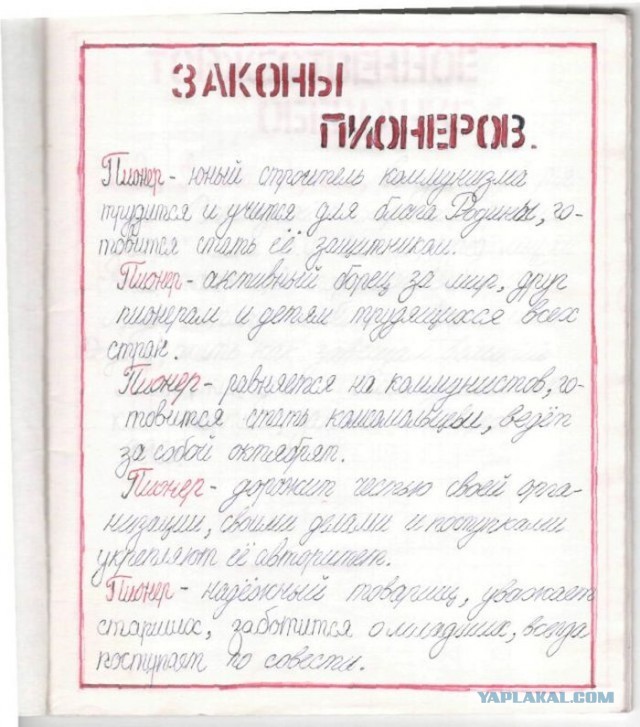 ЗАКОНЫ
ПИОНЕРОВ.
Пионер - юный строитель коммунизма
трудится и учится для блага Родины, го-
товится стать её защитником.
Пионер - активный борец за мир, друг
пионерам и детям трудящихся всех
стран.
Пионер - равняется на коммунистов, го-
товится стать комсомольцем, ведёт
за собой октябрят.
Пионер - дорожит честью своей орга-
низации, своими делами и поступками
укрепляют её авторитет.
Пионер - надёжный товарищ, уважает
старших, заботится о младших, всегда
поступает по совести.
YAPLAKAL.COM